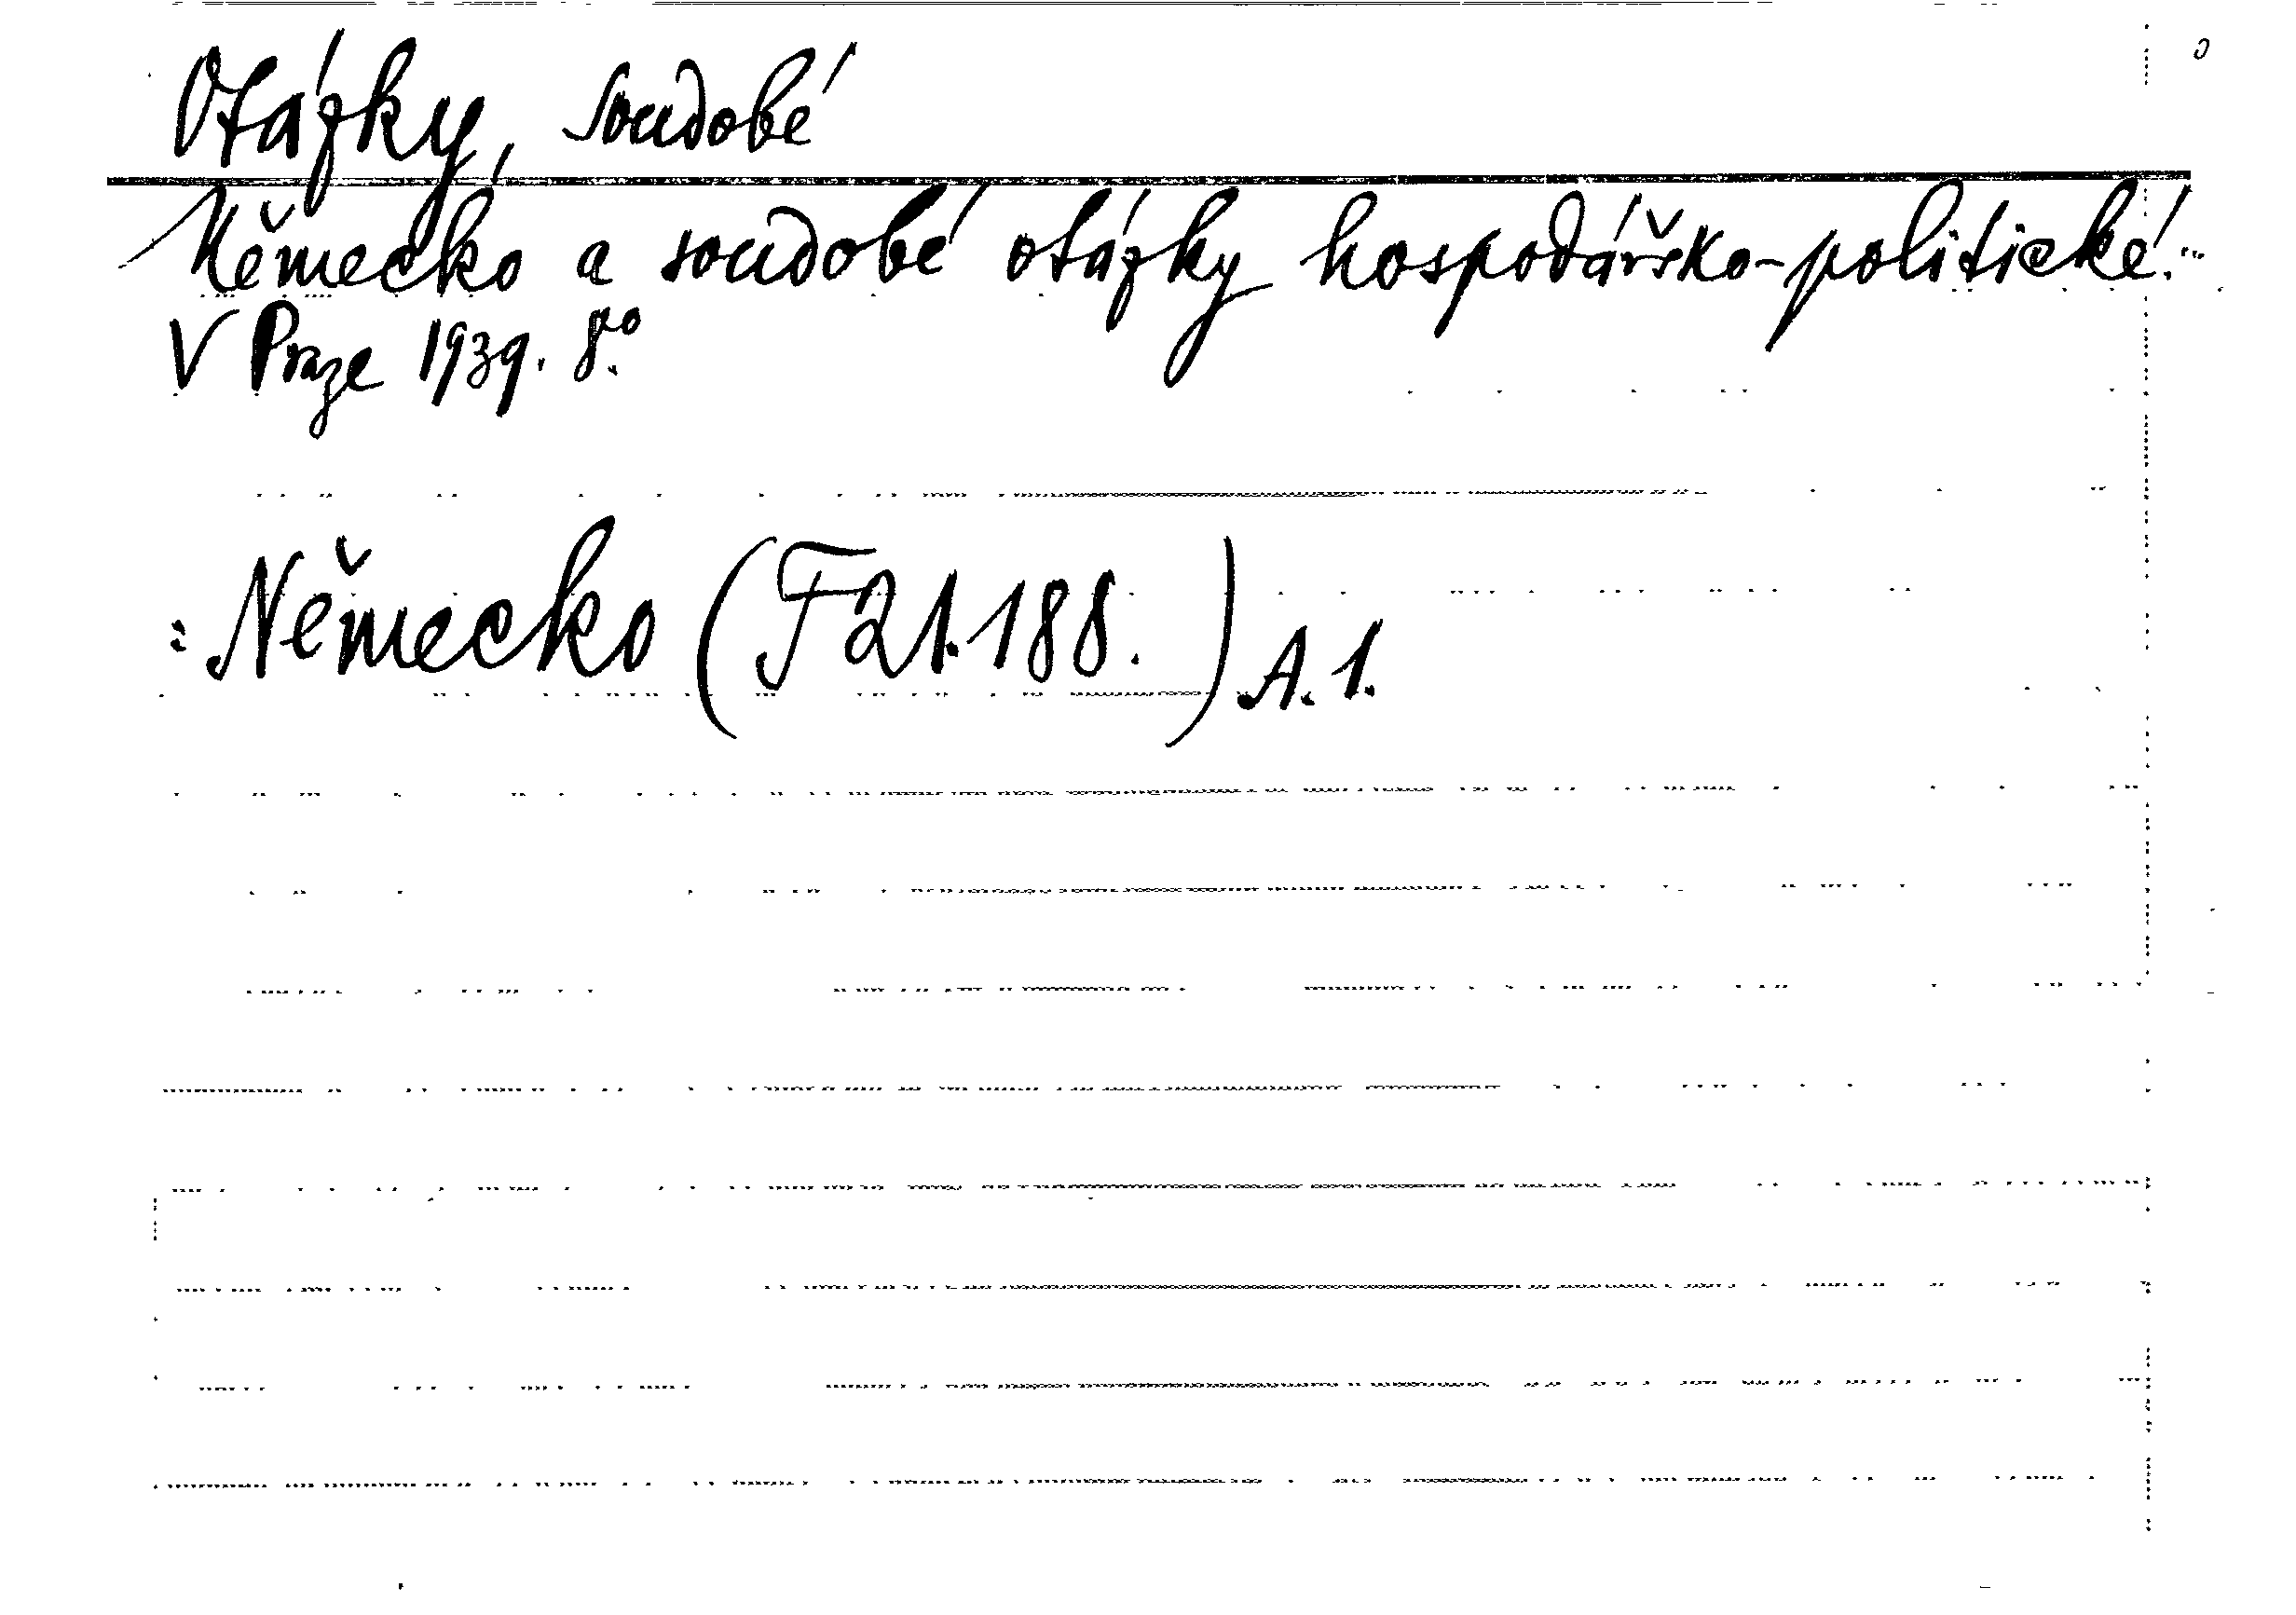 Otázky, soudobé
Německo a soudobé otázky hospodářsko-politické.
V Praze 1939. 8º.
: Německo (F 21.188.) A. 1.